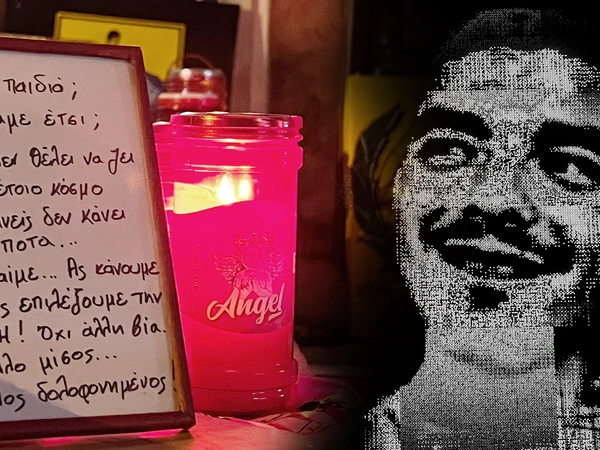 παιδιά ;
με έτσι ;
θέλει να ζει
έτοιο κόσμο
νείς δεν κάνει
ποτα...
αίμε... Ας κάνουμε
ς επιλέξουμε την
Η ! Όχι άλλη βία.
λλο μίσος...
λος δολοφονημένος !
Angel